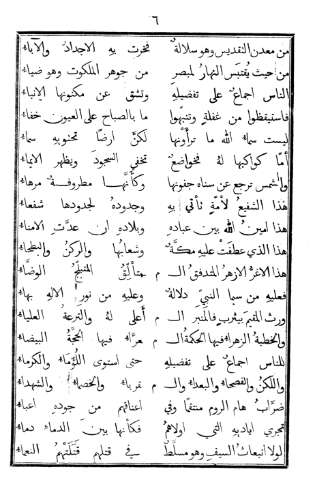 ٦
من معدن التقديس وهو سلالة فخرت به الاجداد والآباء
من حيث يقتبس النهار لمبصر من جوهر الملكوت وهو ضياء
الناس اجماع على تفضيله وتشق عن مكنونها الانباء
فاستيقظوا من غفلة وتنبهوا ما بالصباح على العيون خفاء
ليست سماء الله ما ترأونها لكن ارضا تحتويه سماء
أما كواكبها له فخواضع تخفي السجود ويظهر الايماء
والشمس ترجع عن سناه جفونها وكأنها مطروفة مرهاء
هذا الشفيع لأمة تأتي به وجدوده لجدودها شفعاء
هذا امين الله بين عباده وبلاده ان عدت الامناء
هذا الذي عطفت عليه مكة وشعابها والركن والبطحاء
هذا الاغر الازهر المتدفق الـ م متألق المتبلج الوضاء
فعليه من سيما النبي دلالة وعليه من نور الاله بهاء
ورث المقيم بيثرب فالمنبر الـ م أعلى له والترعة العلياء
والخطبة الزهراء فيها الحكمة الـ م غراء فيها الحجة البيضاء
للناس اجماع على تفضيله حتى استوى اللؤماء والكرماء
واللكن والفصحاء والبعداء والـ م قرباء والخصماء والشهداء
ضراب هام الروم منتقما وفي اعناقهم من جوده اعباء
تجري اياديه التي اولاهم فكأنها بين الدماء دماء
لولا انبعاث السيف وهو مسلط في قتلهم قتلتهم النعماء